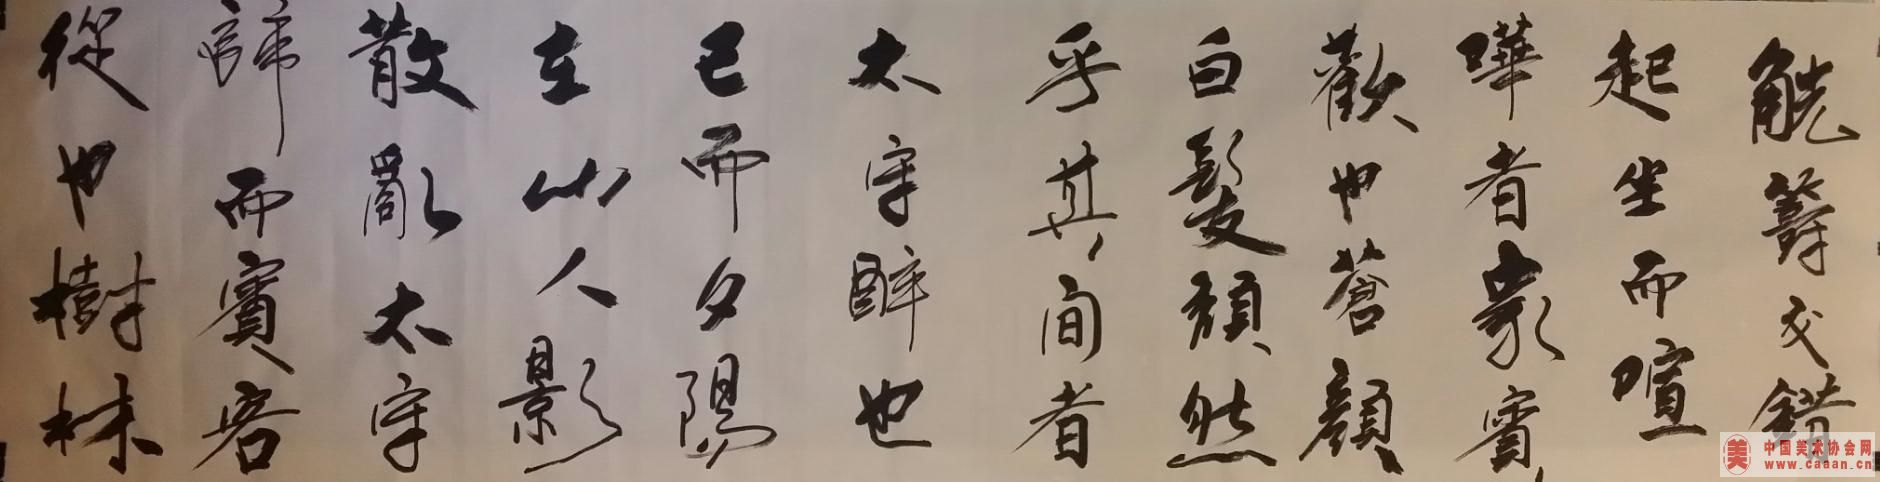 觥籌交錯
起坐而喧
嘩者衆賓
歡也蒼顏
白髮頹然
乎其间者
太守醉也
已而夕陽
在山人影
散亂太守
歸而賓客
從也樹林
中国美术协会网
www.caaan.cn
美